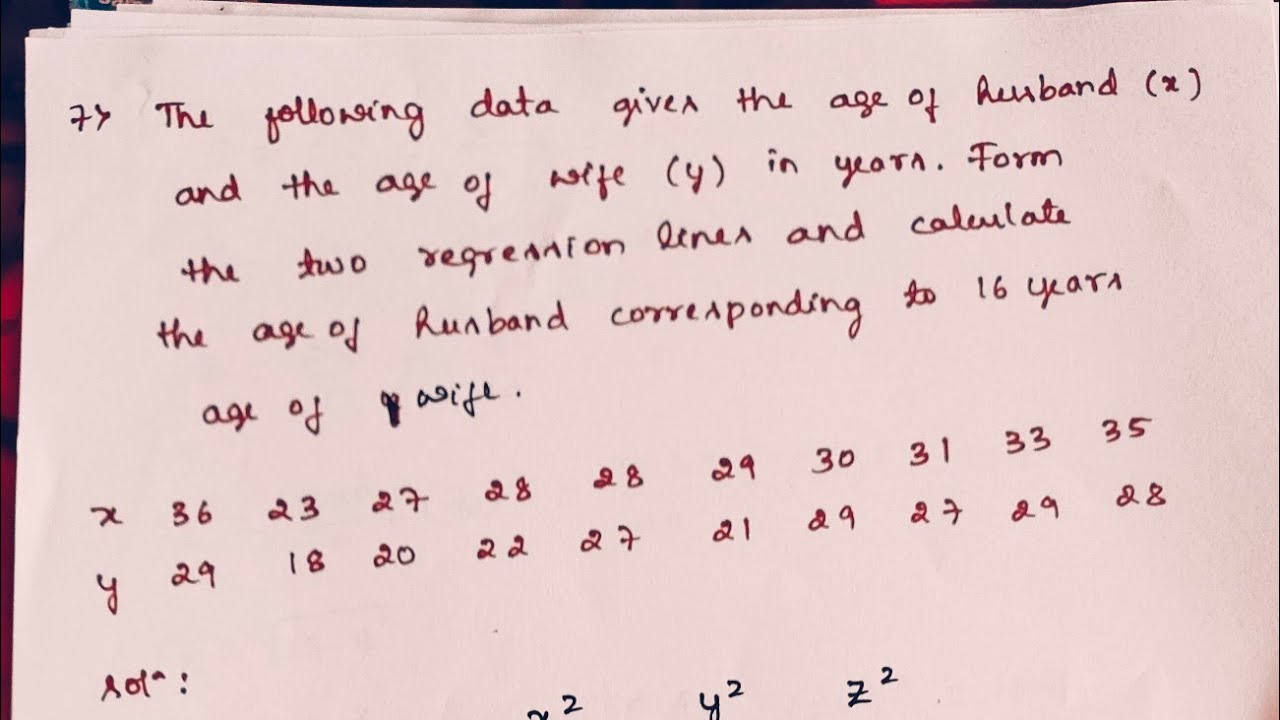 7> The following data gives the age of Husband (x)
and the age of wife (y) in years. Form
the two regression lines and calculate
the age of Husband corresponding to 16 years
age of wife.
x 36 23 27 28 28 29 30 31 33 35
y 29 18 20 22 27 21 29 27 29 28
solⁿ:
x² y² z²